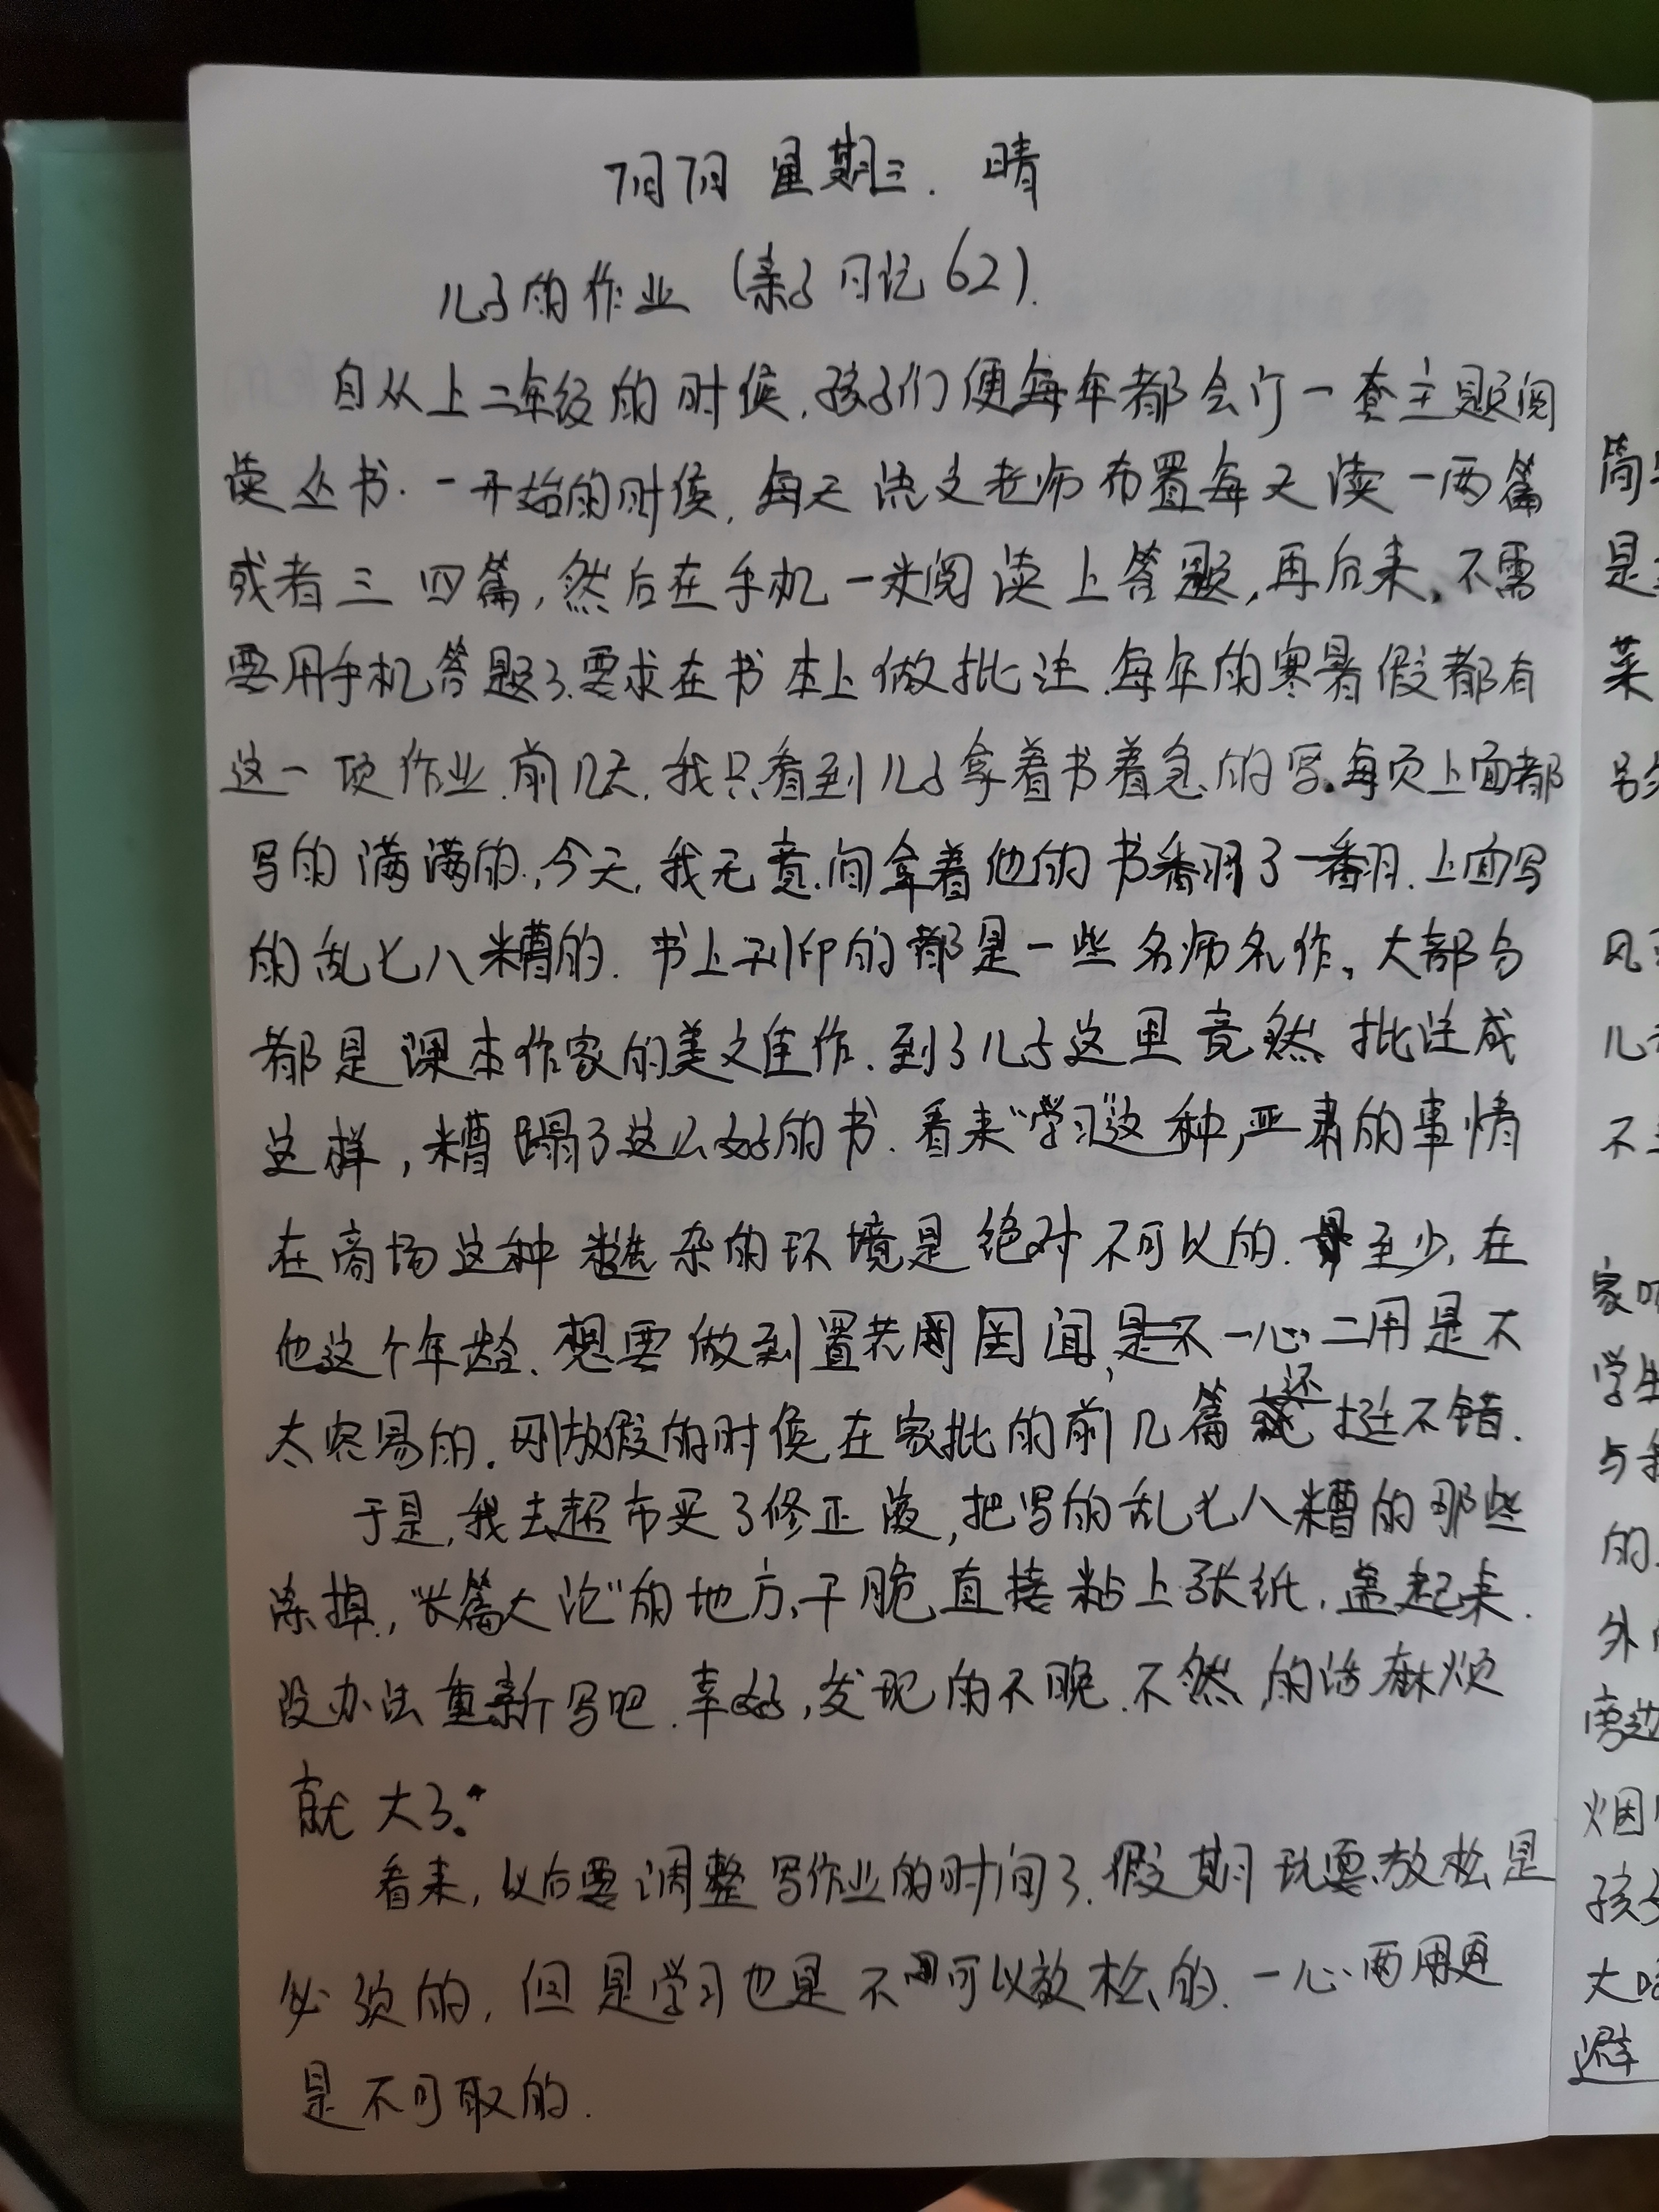 7月7日 星期三. 晴
儿子的作业 (亲子日记62).
自从上二年级的时候,孩子们便每年都会订一套主题阅
读丛书.一开始的时候,每天语文老师布置每天读一两篇
或者三四篇,然后在手机一米阅读上答题,再后来,不需
要用手机答题了.要求在书本上做批注.每年的寒暑假都有
这一项作业.前几天,我只看到儿子拿着书着急的写.每页上面都
写的满满的,今天,我无意间拿着他的书翻了一翻.上面写
的乱七八糟的.书上刊印的都是一些名师名作,大部分
都是课本作家的美文佳作.到了儿子这里竟然批注成
这样,糟蹋了这么好的书.看来“学习”这种严肃的事情
在商场这种杂的环境是绝对不可以的.至少,在
他这个年龄.想要做到置若罔闻,一心二用是不
太容易的.刚放假的时候,在家批的前几篇还挺不错.
于是,我去超市买了修正液,把写的乱七八糟的那些
涂掉,“长篇大论”的地方,干脆直接粘上张纸,盖起来.
没办法重新写吧.幸好,发现的不晚.不然的话麻烦
就大了.
看来,以后要调整写作业的时间了.假期玩耍放松是
必须的,但是学习也是不可以放松的.一心两用更
是不可取的.
简
是
菜
另外
风
儿
不
家
学生
与
的
外
旁边
烟
孩子
大
避